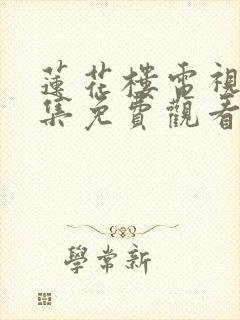 蓮花樓電視
集免費觀看
學常新